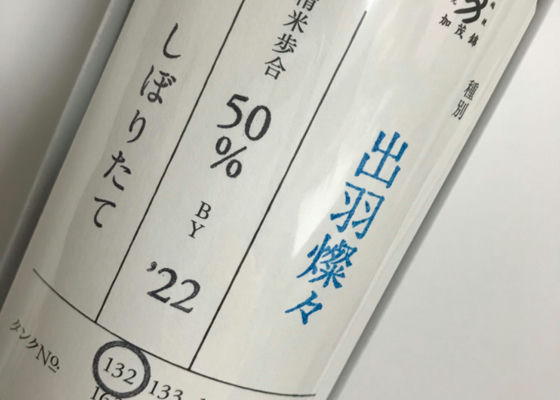 加茂錦
種別
出羽燦々
精米歩合
50%
BY
'22
しぼりたて
タンクNo.
132 133